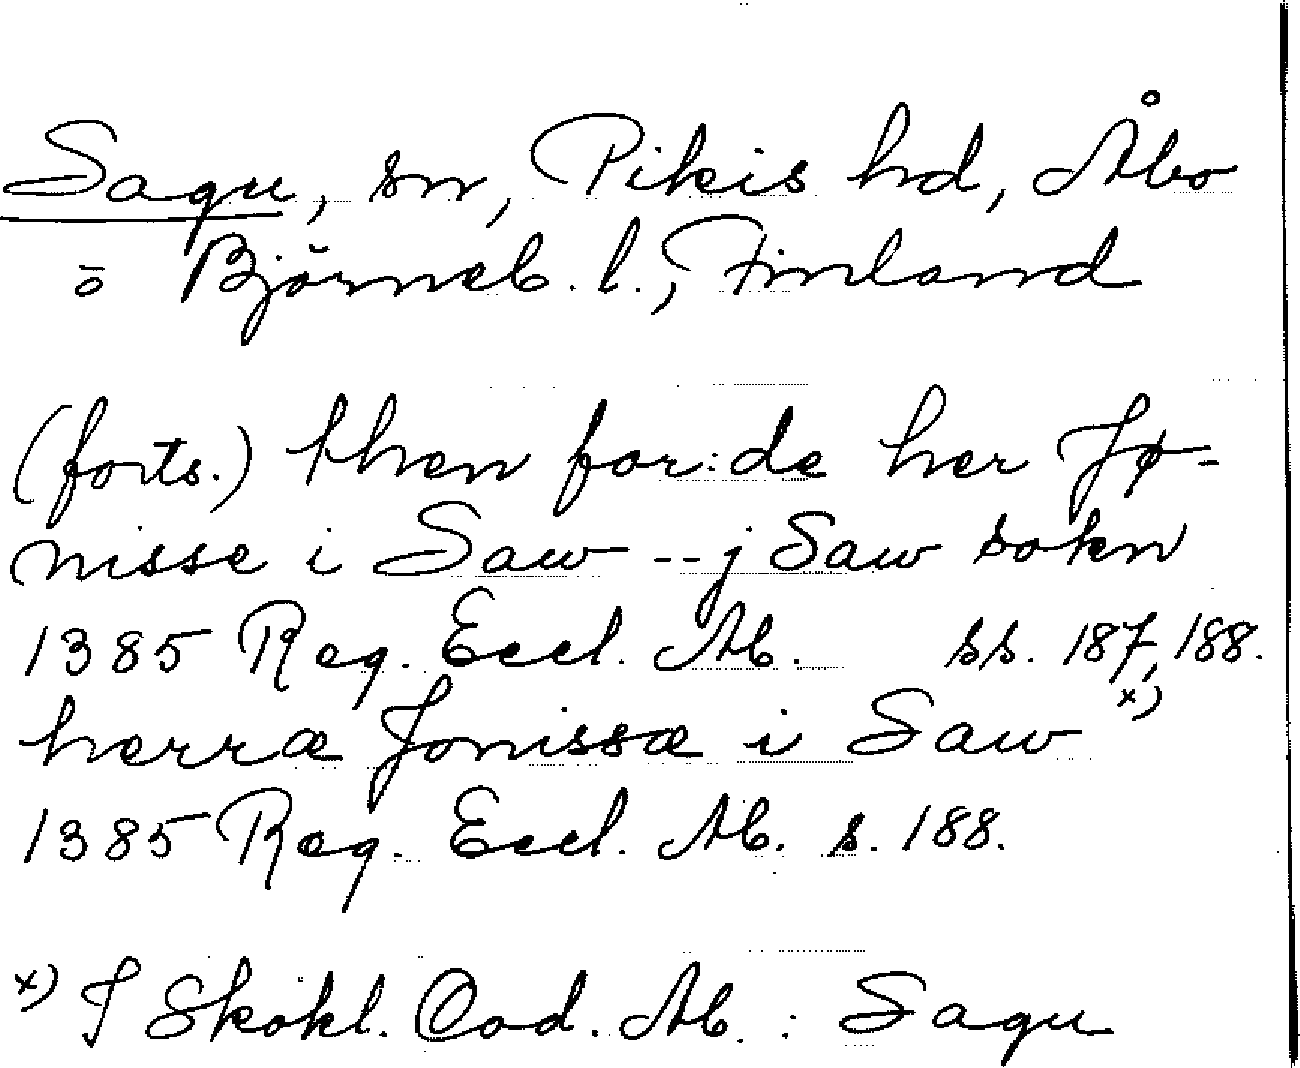 Sagu, sn, Pikis hd, Åbo
o Björneb. l., Finland
(forts.) then for:de her Jø-
nisse i Saw -- j Saw sokn
1385 Reg. Eccl. Ab. ss. 187, 188.
herræ Jonissæ i Saw x)
1385 Reg. Eccl. Ab. s. 188.
x) I Skokl. Cod. Ab. : Sagu